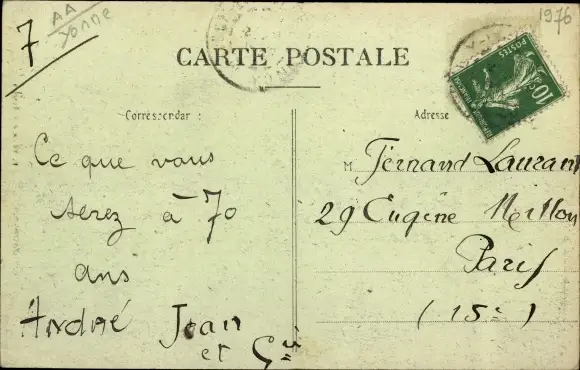 7
AA
Yonne
1976
CARTE POSTALE
Correspondar :
Adresse
POSTES
10c
Ce que vous
serez à 70
ans
André Jean
et Cie
M Fernand Laurant
29 Eugène Millon
Paris
(15e)